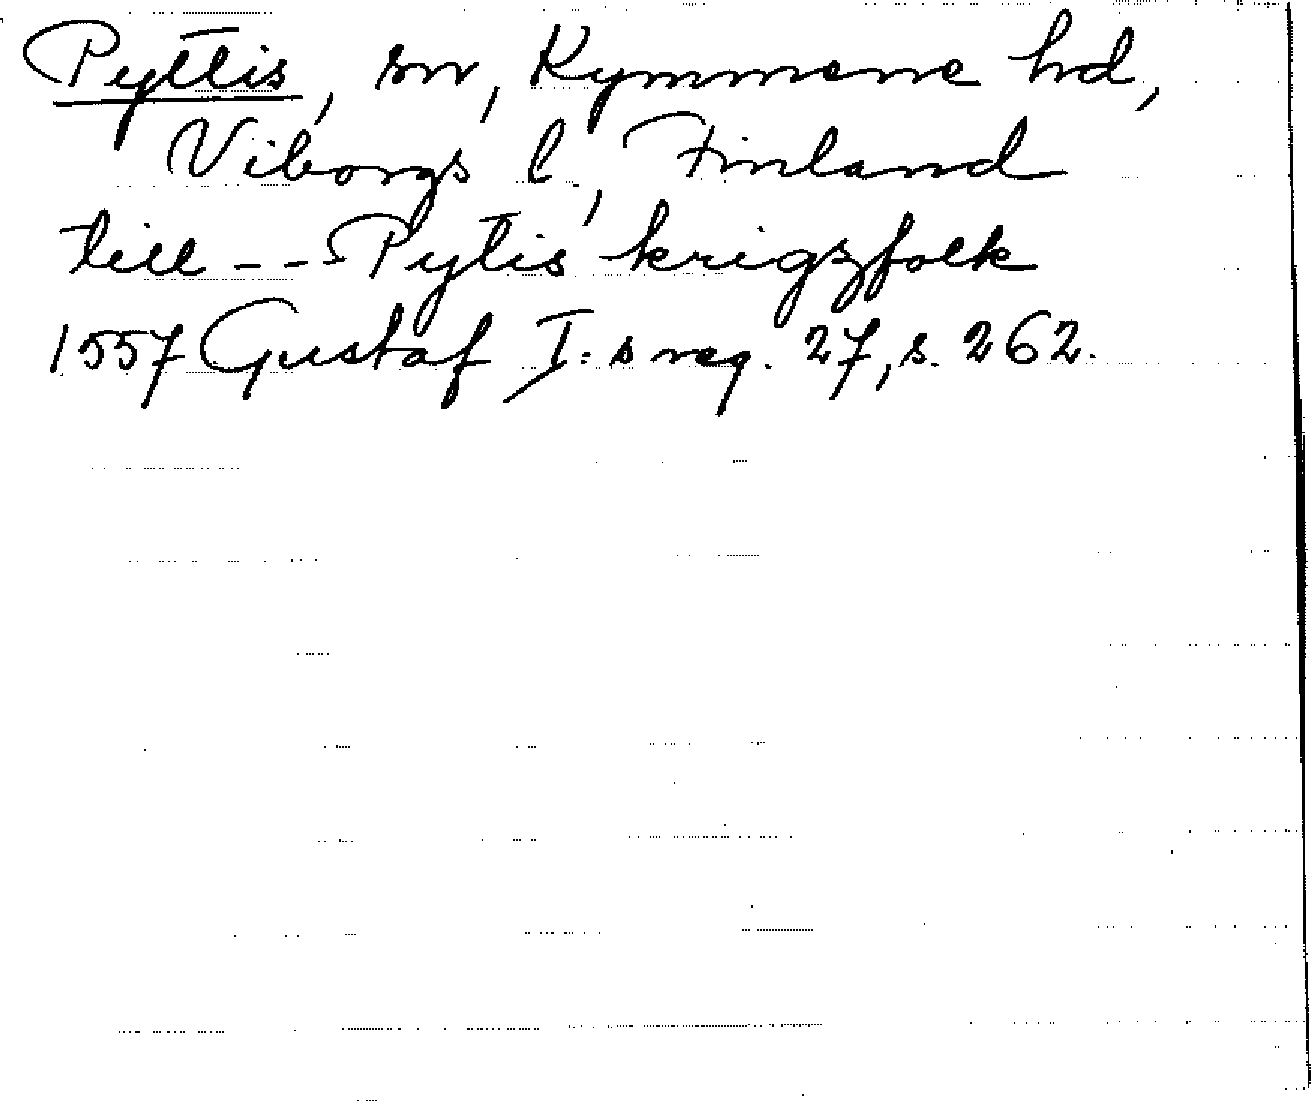 Pyttis, sn, Kymmene hd,
Viborgs l., Finland
till --- Pytis krigzfolk
1557 Gustaf I:s reg. 27, s. 262.